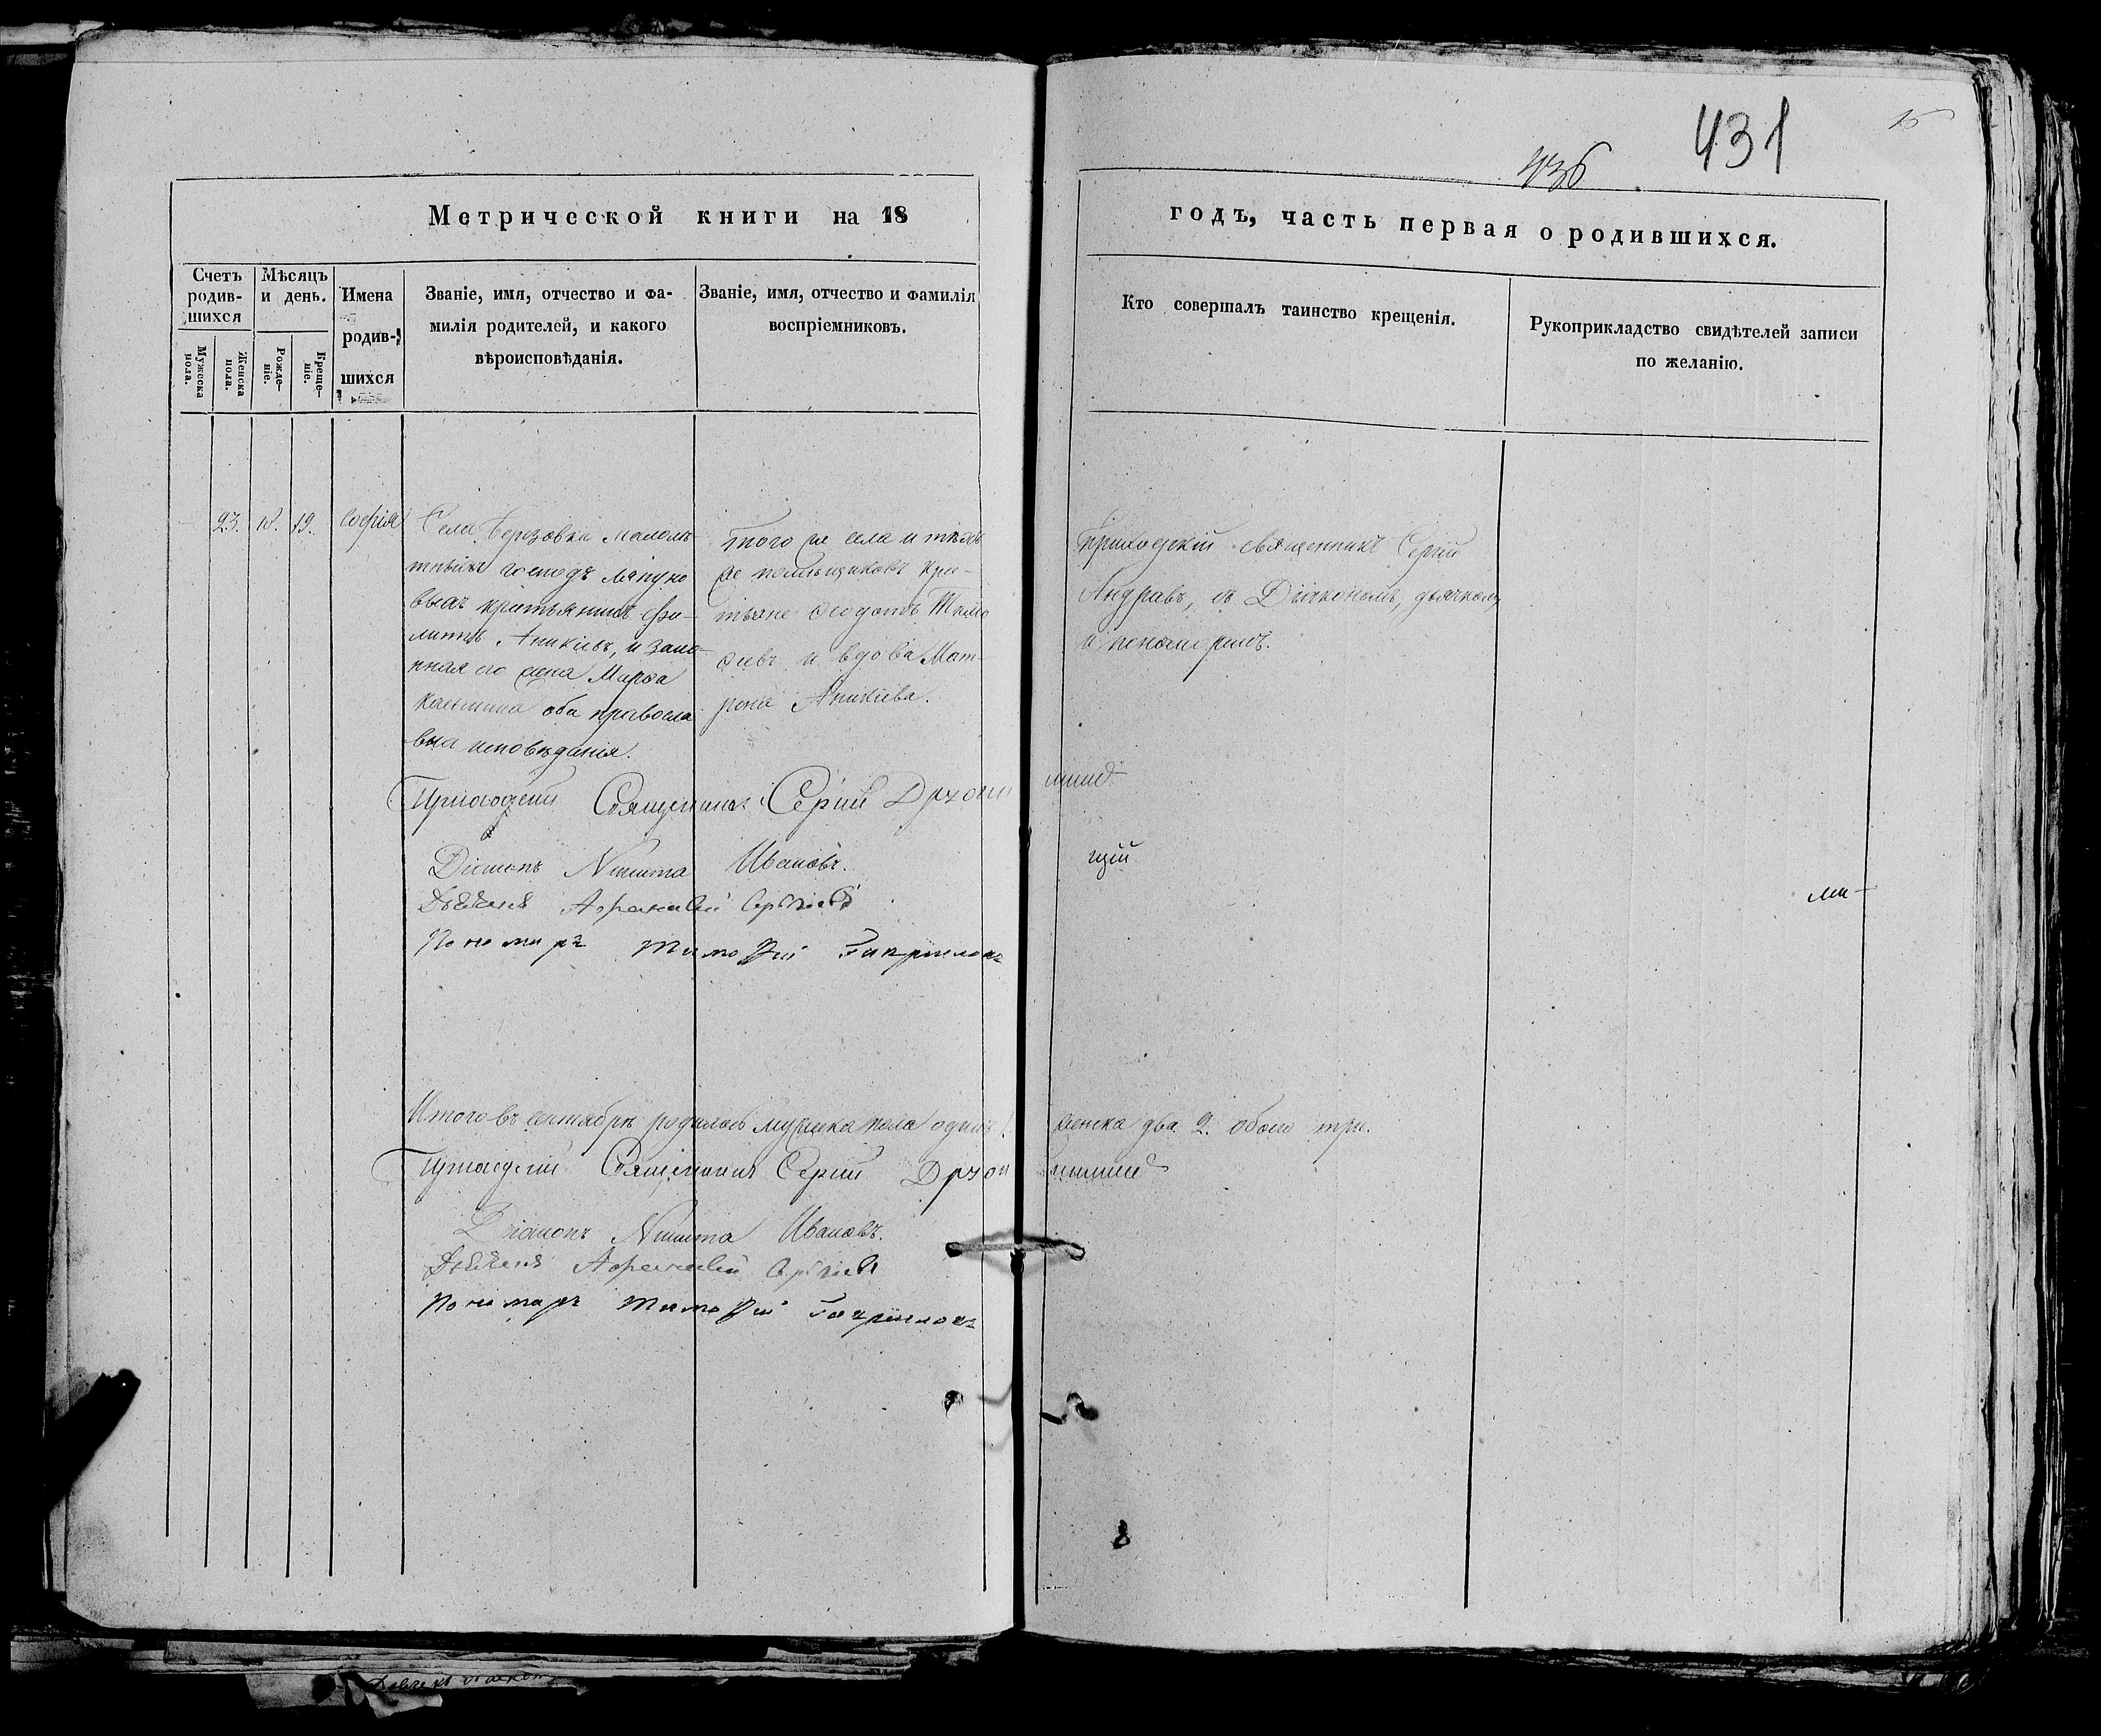 431
436
15
Метрической книги на 18
годъ, часть первая о родившихся.
Счетъ родив-шихся
Мужеска пола.
Женска пола.
Мѣсяцъ и день.
Рожде-ніе.
Креще-ніе.
Имена родив-шихся
Званіе, имя, отчество и фа-
милія родителей, и какого
вѣроисповѣданія.
Званіе, имя, отчество и фамилія
воспріемниковъ.
Кто совершалъ таинство крещенія.
Рукоприкладство свидѣтелей записи
по желанію.
23. 18. 19. Софія
Села Березовки малолѣ-
тныхъ господъ Ляпуно
выхъ крестьянинъ Фи-
липпъ Аникіевъ, и зако-
нная его жена Марѳа
Козьмина оба правосла
вна исповѣданія.
того же села и тѣхъ
же помѣщиковъ кре-
стьяне Ѳеодотъ Тимо
ѳеевъ и вдова Мат-
рона Аникіева.
Приходскій священникъ Сергій
Андреевъ, съ Діакономъ, дьячкомъ
и пономаремъ.
Приходскій Священникъ Сергій
Діаконъ Никита Ивановъ.
Дьячекъ Сергіевъ
Пономарь Тимоѳей Гавриловъ
щій
ми-
Итого въ сентябрѣ родилось мужеска пола одинъ 1. женска два 2. обоего три.
Приходскій Священникъ Сергій
Діаконъ Никита Ивановъ.
Дьячекъ Сергіевъ
Пономарь Тимоѳей Гавриловъ